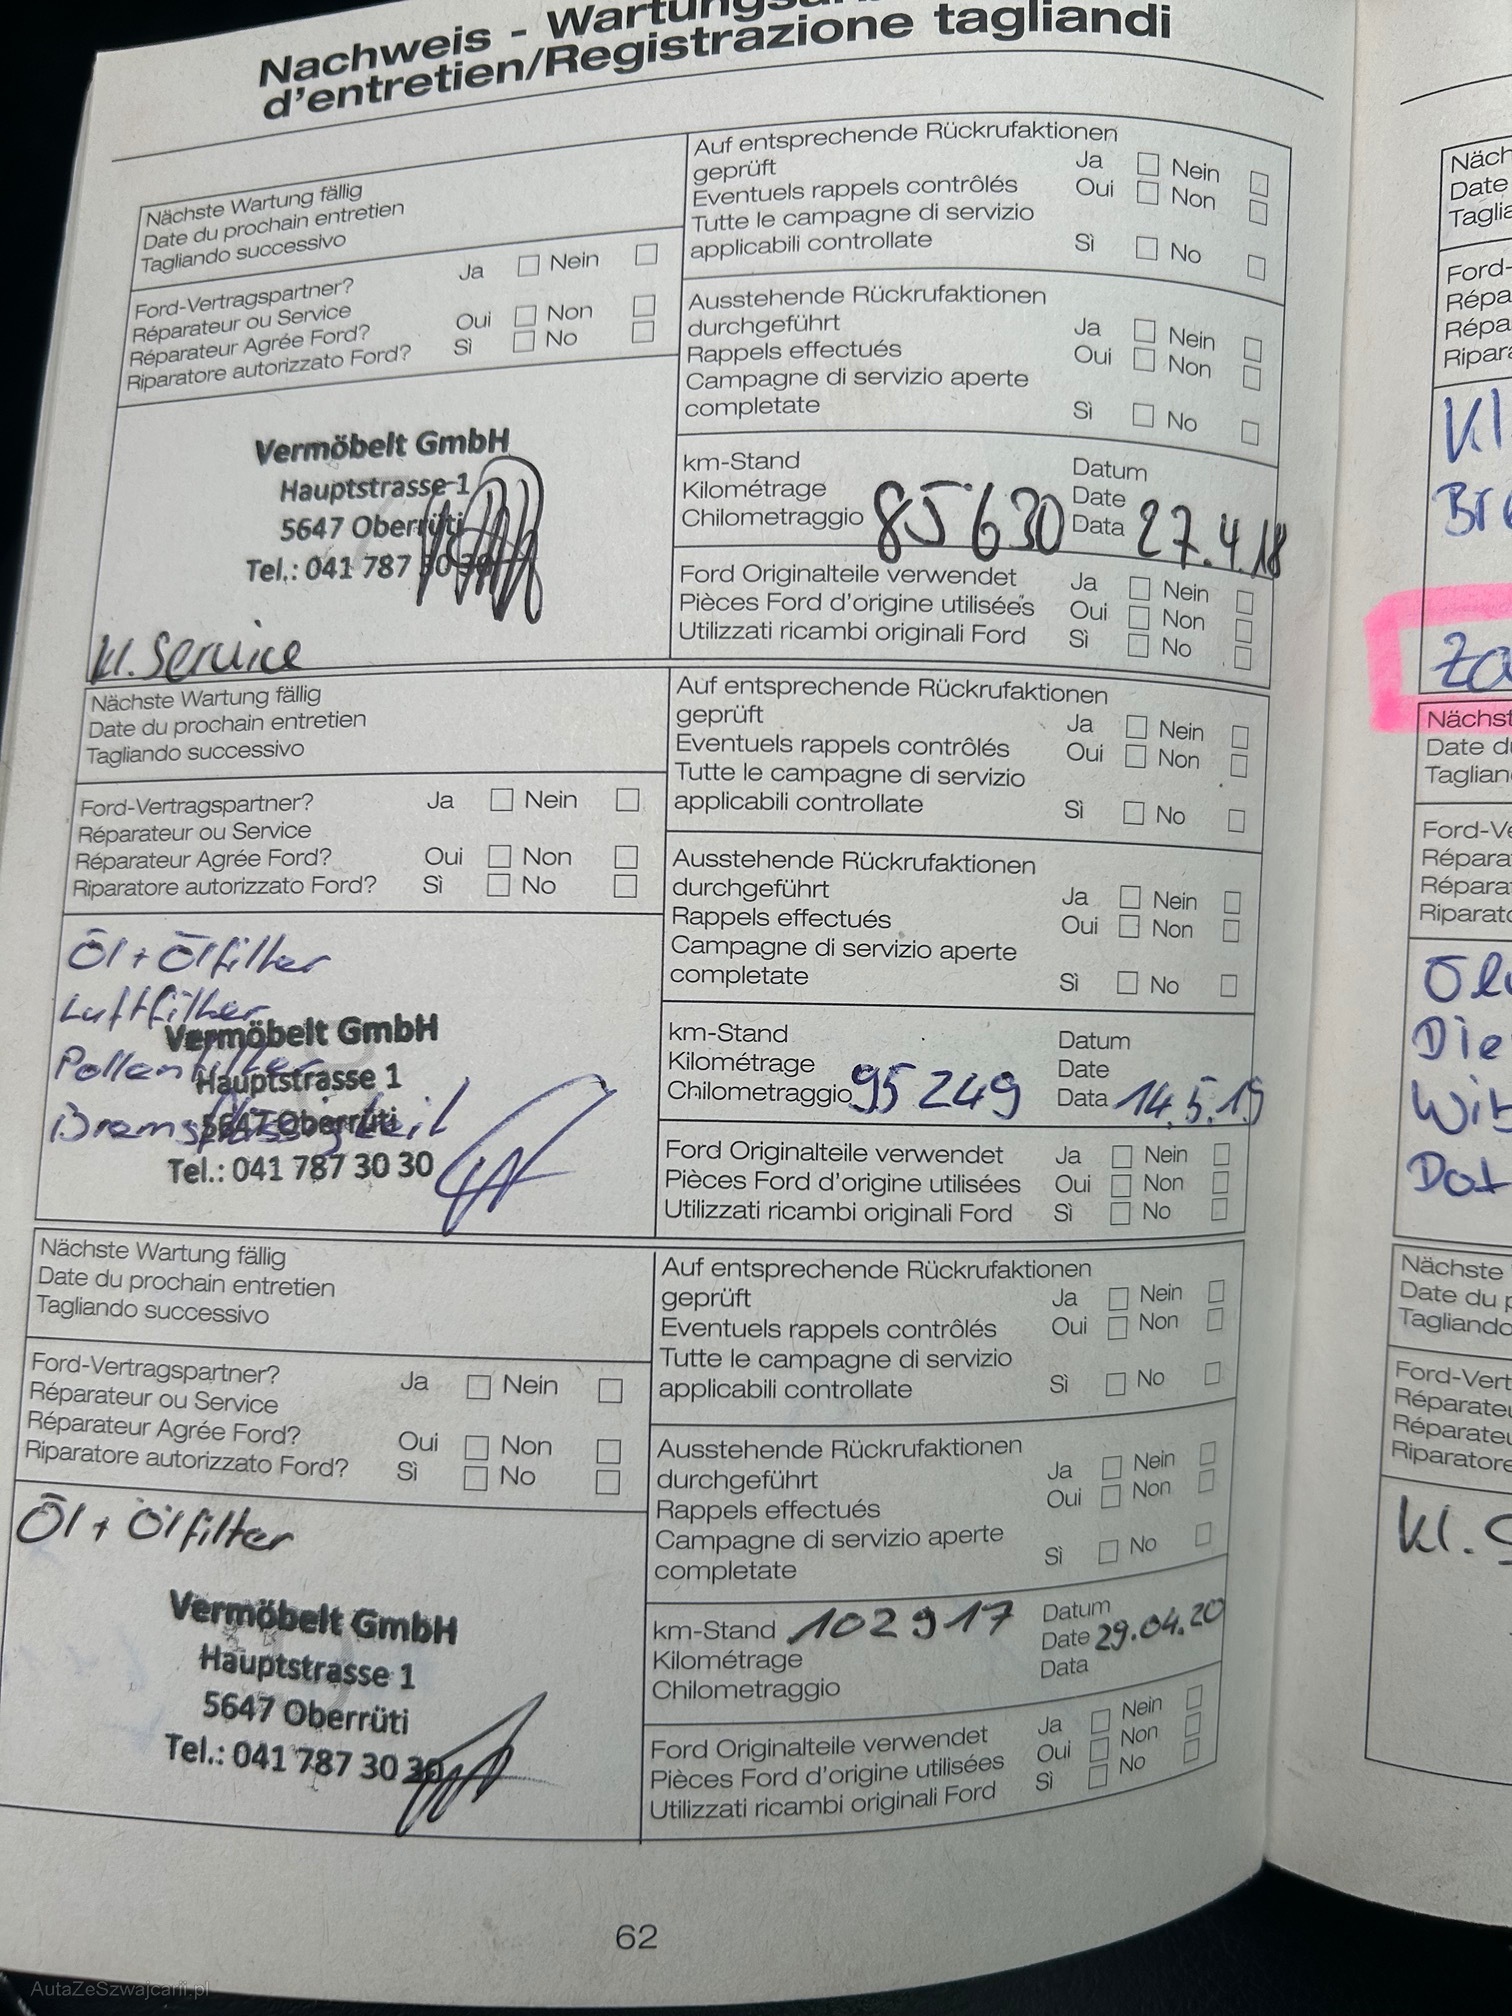 Nachweis -
d'entretien/Registrazione tagliandi
Nächste Wartung fällig
Date du prochain entretien
Tagliando successivo
Ford-Vertragspartner?
Réparateur ou Service
Réparateur Agrée Ford?
Riparatore autorizzato Ford?
Ja Nein
Oui Non
Sì No
Vermöbelt GmbH
Hauptstrasse 1
5647 Oberrüti
Tel.: 041 787 30 30
kl. Service
Auf entsprechende Rückrufaktionen
geprüft
Ja Nein
Eventuels rappels contrôlés
Oui Non
Tutte le campagne di servizio
applicabili controllate
Sì No
Ausstehende Rückrufaktionen
durchgeführt
Ja Nein
Rappels effectués
Oui Non
Campagne di servizio aperte
completate
Sì No
km-Stand
Kilométrage
Chilometraggio
85630
Datum
Date
Data
27.4.18
Ford Originalteile verwendet Ja Nein
Pièces Ford d'origine utilisées Oui Non
Utilizzati ricambi originali Ford Sì No
Nächste Wartung fällig
Date du prochain entretien
Tagliando successivo
Ford-Vertragspartner? Ja Nein
Réparateur ou Service
Réparateur Agrée Ford? Oui Non
Riparatore autorizzato Ford? Sì No
Öl + Ölfilter
Luftfilter
Pollenfilter
Bremsflüssigkeit
Vermöbelt GmbH
Hauptstrasse 1
5647 Oberrüti
Tel.: 041 787 30 30
Auf entsprechende Rückrufaktionen
geprüft
Ja Nein
Eventuels rappels contrôlés
Oui Non
Tutte le campagne di servizio
applicabili controllate
Sì No
Ausstehende Rückrufaktionen
durchgeführt
Ja Nein
Rappels effectués
Oui Non
Campagne di servizio aperte
completate
Sì No
km-Stand
Kilométrage
Chilometraggio
95249
Datum
Date
Data
14.5.19
Ford Originalteile verwendet Ja Nein
Pièces Ford d'origine utilisées Oui Non
Utilizzati ricambi originali Ford Sì No
Nächste Wartung fällig
Date du prochain entretien
Tagliando successivo
Ford-Vertragspartner? Ja Nein
Réparateur ou Service
Réparateur Agrée Ford? Oui Non
Riparatore autorizzato Ford? Sì No
Öl + Ölfilter
Vermöbelt GmbH
Hauptstrasse 1
5647 Oberrüti
Tel.: 041 787 30 30
Auf entsprechende Rückrufaktionen
geprüft
Ja Nein
Eventuels rappels contrôlés
Oui Non
Tutte le campagne di servizio
applicabili controllate
Sì No
Ausstehende Rückrufaktionen
durchgeführt
Ja Nein
Rappels effectués
Oui Non
Campagne di servizio aperte
completate
Sì No
km-Stand 102917
Kilométrage
Chilometraggio
Datum
Date 29.04.20
Data
Ford Originalteile verwendet Ja Nein
Pièces Ford d'origine utilisées Oui Non
Utilizzati ricambi originali Ford Sì No
62
Nächste
Date du
Tagliando
Kl.
AutaZeSzwajcarii.pl